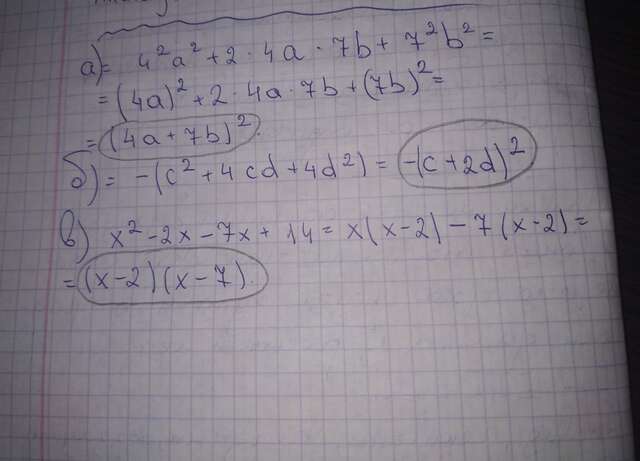 а) = 4²a² + 2 · 4a · 7b + 7²b² =
= (4a)² + 2 · 4a · 7b + (7b)² =
= (4a + 7b)².
б) = -(c² + 4cd + 4d²) = -(c + 2d)²
в) x² - 2x - 7x + 14 = x(x-2) - 7(x-2) =
= (x-2)(x-7).